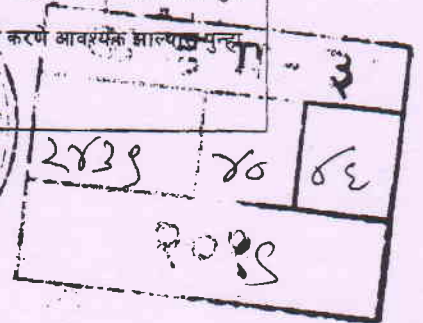 करणे आवश्यक झाल्यास पुन्हा
- ३
२४३९ ४० ४६
२०१९